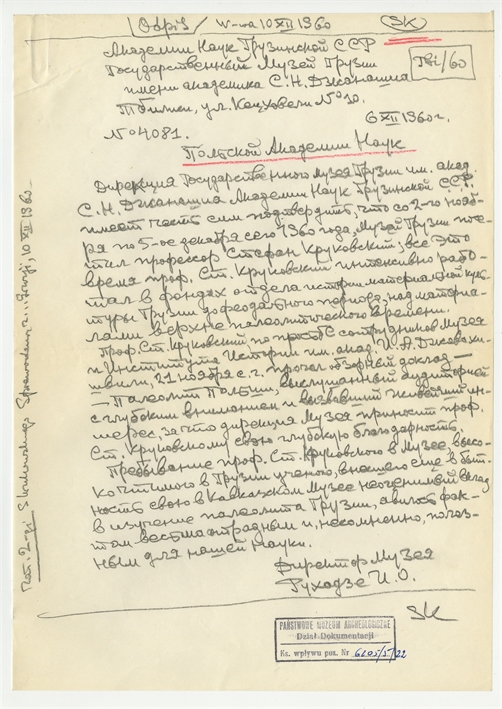 /Odpis/ W-wa 10 XII 1960
SK
Академии Наук Грузинской ССР
Государственный Музей Грузии
имени академика С. Н. Джанашиа
Тбилиси, ул. Кецховели № 10.
Tbi/60
6 XII 1960 г.
№ 4081.
Польской Академии Наук
Дирекция Государственного Музея Грузии им. акад.
С. Н. Джанашиа Академии Наук Грузинской ССР.
имеет честь сим подтвердить, что со 2-го нояб-
ря по 5-ое декабря сего 1960 года, Музей Грузии посе-
тил профессор Стефан Круковский; все это
время проф. Ст. Круковский интенсивно рабо-
тал в фондах отдела истории материальной куль-
туры Грузии дофеодального периода, над материа-
лами верхне палеолитического времени.
Проф. Ст. Круковский по просьбе сотрудников Музея
и Института Истории им. акад. И. А. Джавахи-
швили, 21 ноября с. г. прочел обзорный доклад —
— Палеолит Польши, выслушанный аудиторией
с глубоким вниманием и вызвавший живейший ин-
терес, за что дирекция Музея приносит проф.
Ст. Круковскому свою глубокую благодарность.
Пребывание проф. Ст. Круковского в Музее, высо-
кочтимого в Грузии ученого, внесшего еще в быт-
ность свою в Кавказском Музее неоценимый вклад
в изучение палеолита Грузии, явилось фак-
том весьма отрадным и, несомненно, полез-
ным для нашей Науки.
Директор Музея
Рухадзе И. О.
SK
PAŃSTWOWE MUZEUM ARCHEOLOGICZNE
Dział Dokumentacji
Ks. wpływu poz. Nr 6205/5/22
S Krukowskiego Sprawozdania z Gruzji, 10 XII 1960